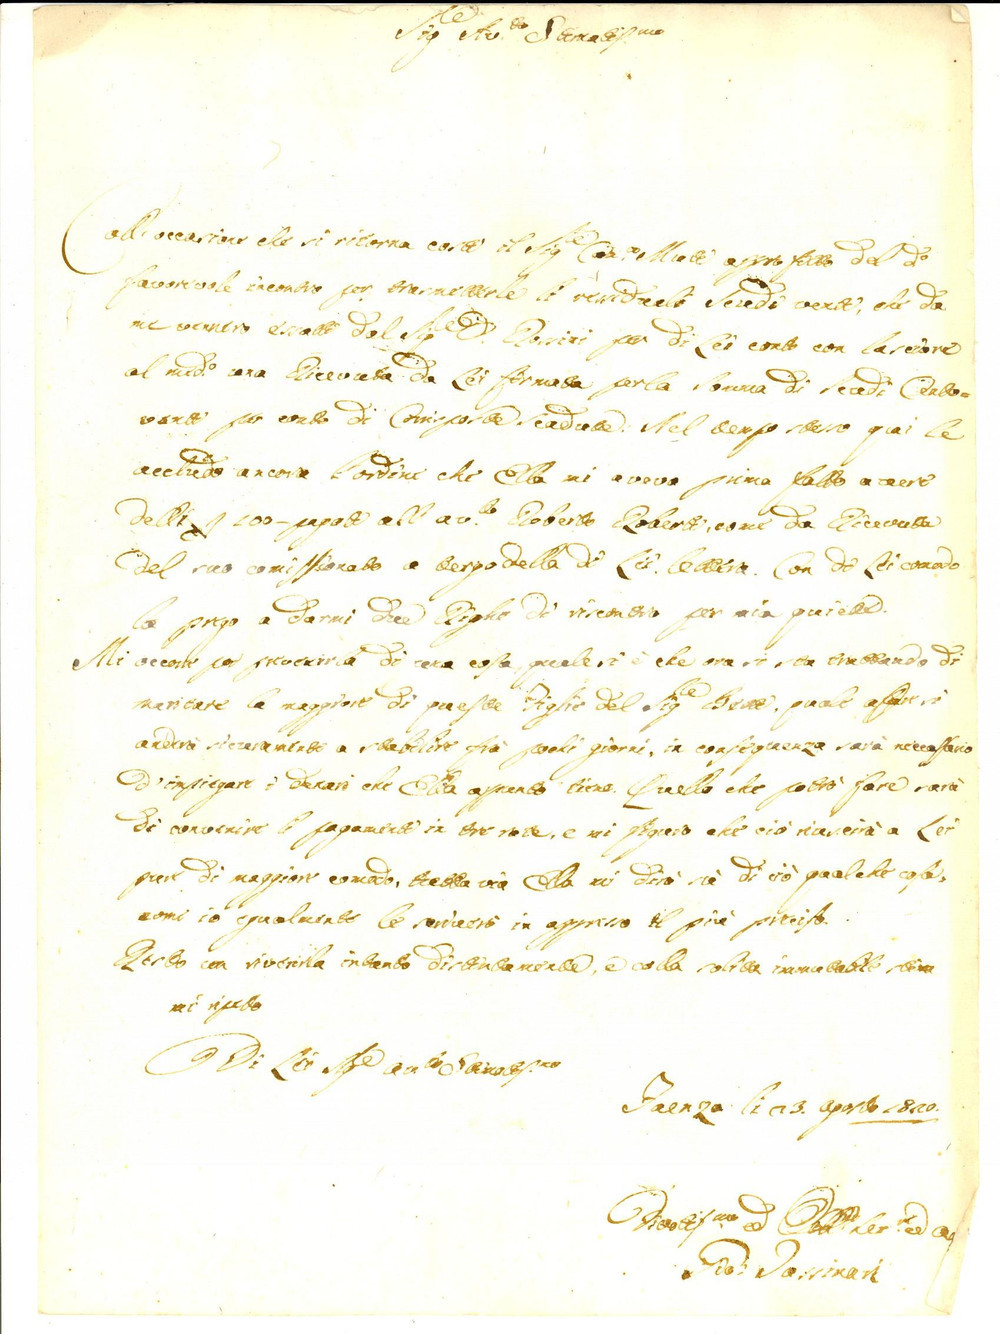 Sig.re Avv.to Stimatis.mo
Coll'occasione che si ritorna costì il Sig.re Can.co Miotti approfitto del d.o
favorevole incontro per trasmetterle li residuali Scudi venti, che da
me vennero esatti dal Sig.re D. Rossini per di Lei conto con lasciare
al med.o una Ricevuta da Lei firmata per la somma di Scudi Cento=
venti per conto di Corrisposte Scadute. Nel tempo stesso qui le
accludo ancora l'ordine che Ella mi aveva prima fatto avere
delli 100 pagati all'Avv.to Roberto Roberti, come da Ricevuta
del suo comissionato a tergo della di Lei lettera. Con di Lei comodo
la prego a darmi due Righe di riscontro per mia quiete.
Mi occorre per prevenirla di una cosa, quale si è che ora si sta trattando di
maritare la maggiore di queste Figlie del Sig.re quale affare si
andrà sicuramente a stabilire frà pochi giorni, in conseguenza sarà necessario
d'impiegare i denari che Ella appunto tiene. Quello che potrò fare sarà
di convenire li pagamenti in tre rate, e mi figuro che ciò riuscirà a Lei
pure di maggiore comodo, tuttavia Ella mi dirà sù di ciò qualche cosa,
come io egualmente le scriverò in appresso il più preciso.
Resto con riverirla intanto distintamente, e colla solita immutabile stima
mi ripeto
Di Lei Sig.re Avv.to Stimatis.mo
Faenza li 23. agosto 1820.
Devotis.mo ed Obb.mo Ser.re ed